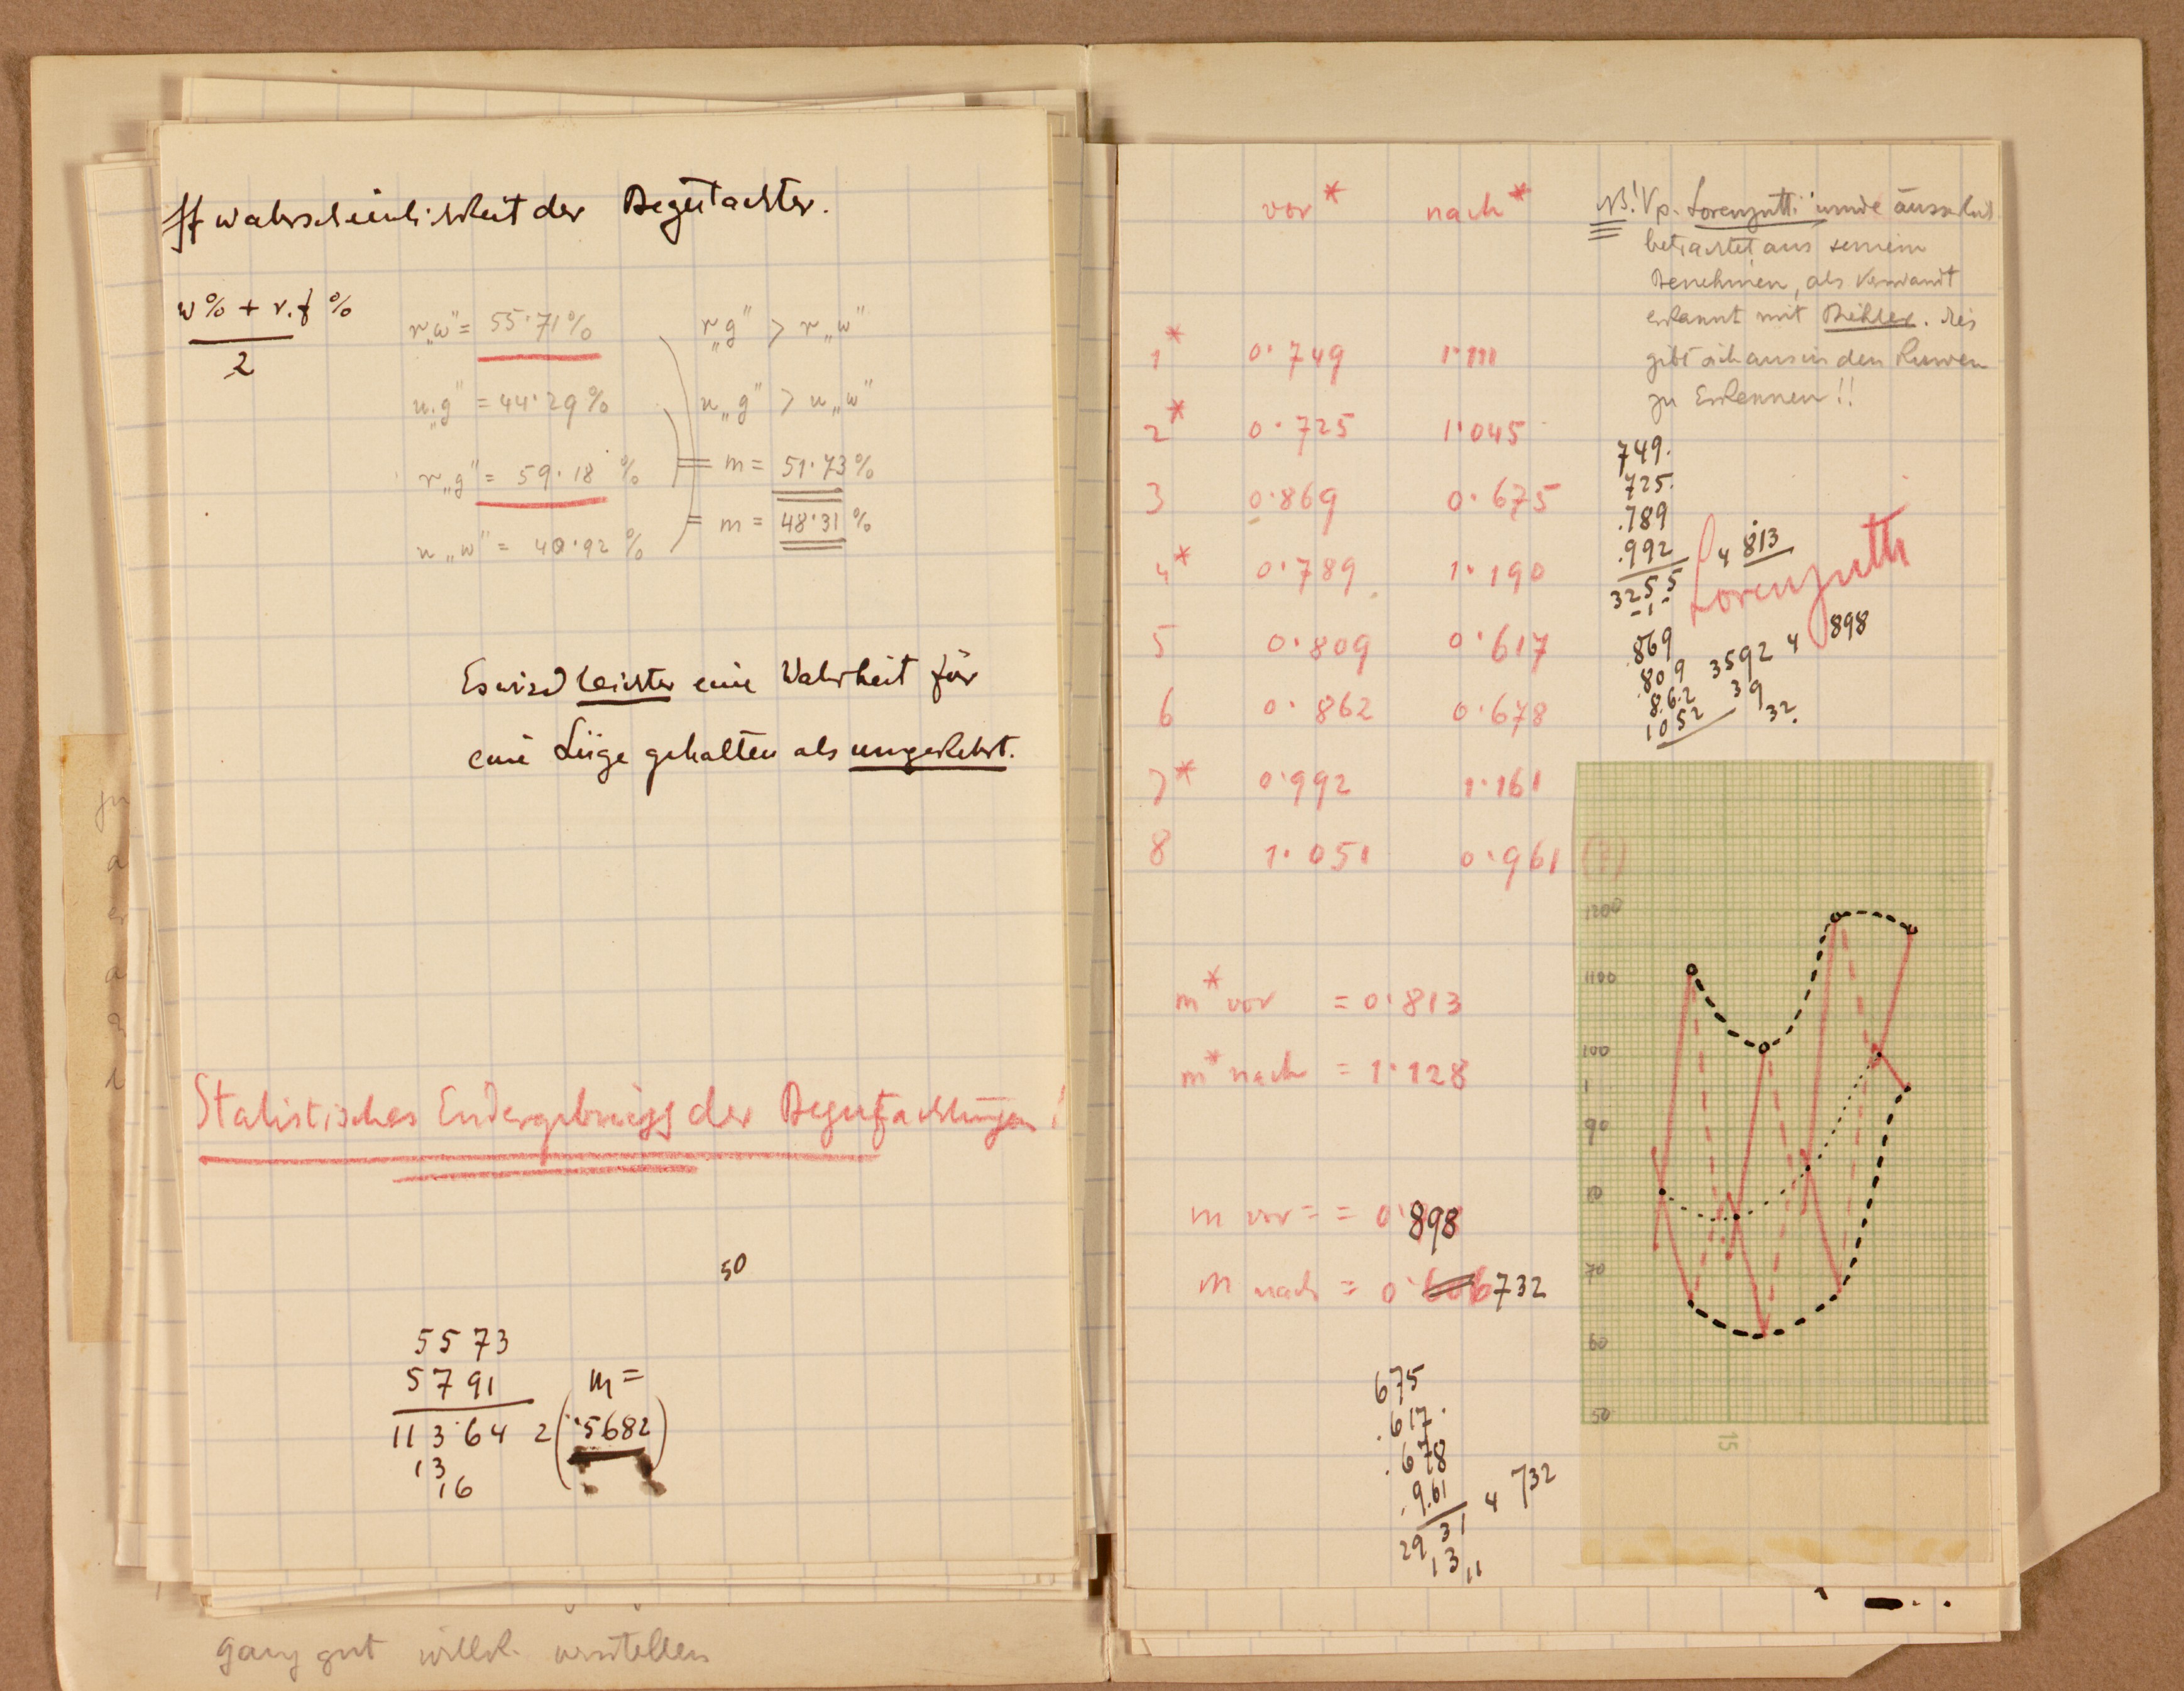 Wahrscheinlichkeit der Begutachter.
w% + r.f%
2
r„w" = 55·71%
r„g" > r„w"
u„g" = 44·29%
u„g" > u„w"
r„g" = 59·18 %
= m = 51·73%
= m = 48·31%
u„w" = 40·92 %
Es wird leichter eine Wahrheit für
eine Lüge gehalten als umgekehrt.
Statistisches Endergebniss der Begutachtungen!
50
5573
5791
11364 2 (·5682)
m =
13
16
ganz gut willk. verstellen
vor* nach*
1* 0·749 1·111
2* 0·725 1·045
3 0·869 0·675
4* 0·789 1·190
5 0·809 0·617
6 0·862 0·678
7* 0·992 1·161
8 1·051 0·961 (?)
m* vor = 0·813
m* nach = 1·128
m vor = = 0·898
m nach = 0·732
675
.617.
.678
.961
2931 4 732
13
11
NB! Vp. Lorenzutti wurde äusserlich
betrachtet aus seinem
Benehmen, als Verwandt
erkannt mit Bühler. Dies
gibt sich aus in den Kurven
zu Erkennen!!
749.
725.
.789
.992
3255 4 813
Lorenzutti
869
.809
.862
1052
3592 4 898
39
32.
1200
1100
100
1
90
80
70
60
50
15